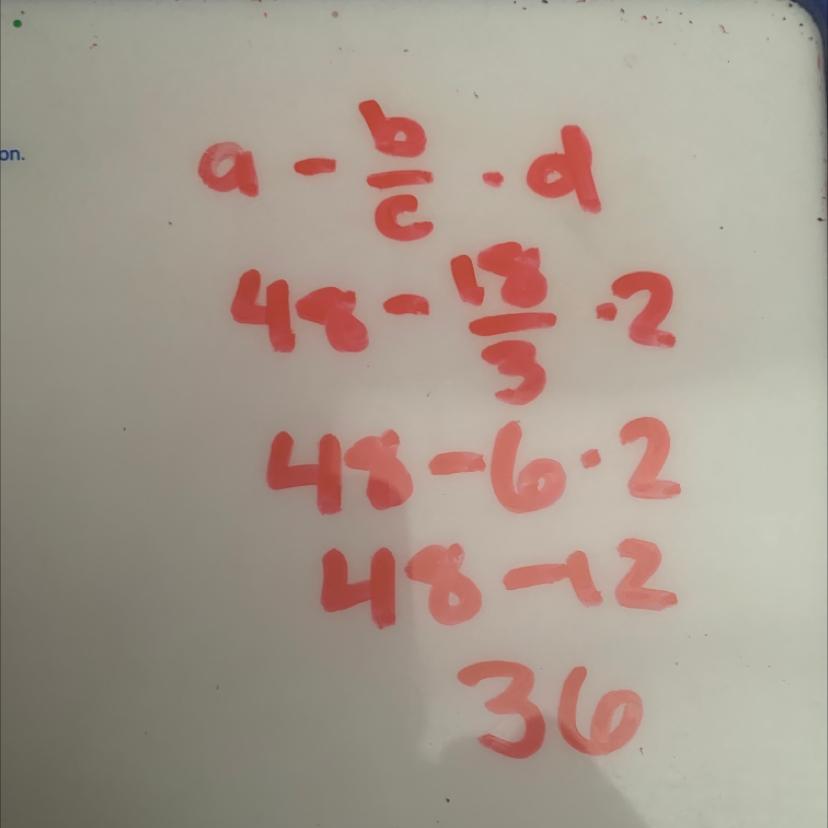 on.
a - b/c · d
48 - 18/3 · 2
48 - 6 · 2
48 - 12
36